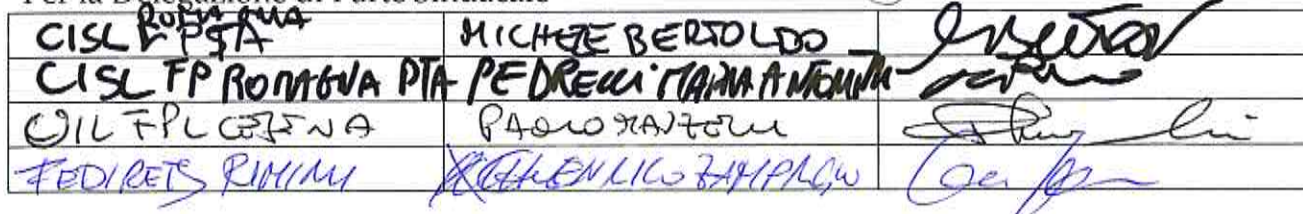 Per la Delegazione di Parte Sindacale
CISL FP ROMAGNA PTA MICHELE BERTOLDO
CISL FP ROMAGNA PTA PEDRELLI MARIA ANTONIETTA
UIL FPL CESENA PAOLO MANZELLI
FEDIRETS RIMINI ENRICO ZAMPARO